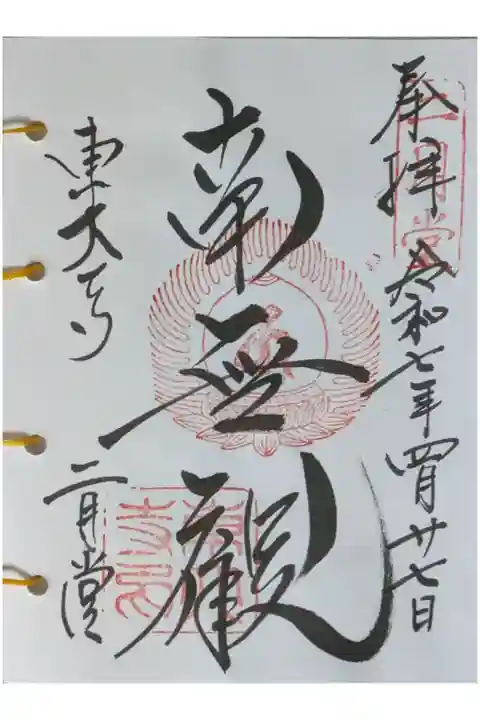 奉拝 令和七年四月廿七日
二月堂
南無観
東大寺 二月堂